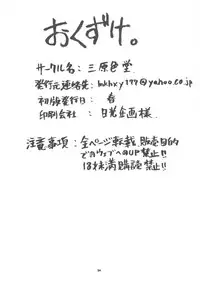 おくずけ。
サークル名：三原色堂
発行元連絡先：
@yahoo.co.jp
初版発行日：春
印刷会社：日光企画様
注意事項：全ページ転載、販売目的
でのウェブへのUP禁止!!
18才未満購読禁止!!